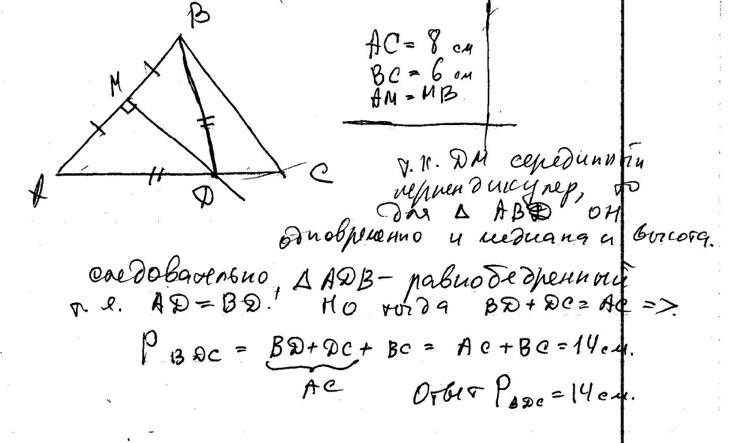 B
M
A
D
C
AC = 8 см
BC = 6 см
AM = MB
т.к. DM серединный
перпендикуляр, то
для △ ABD он
одновременно и медиана и высота.
следовательно, △ ADB – равнобедренный
т.е. AD = BD. Но тогда BD + DC = AC =>
P BDC = BD + DC + BC = AC + BC = 14 см.
AC
Ответ P BDC = 14 см.